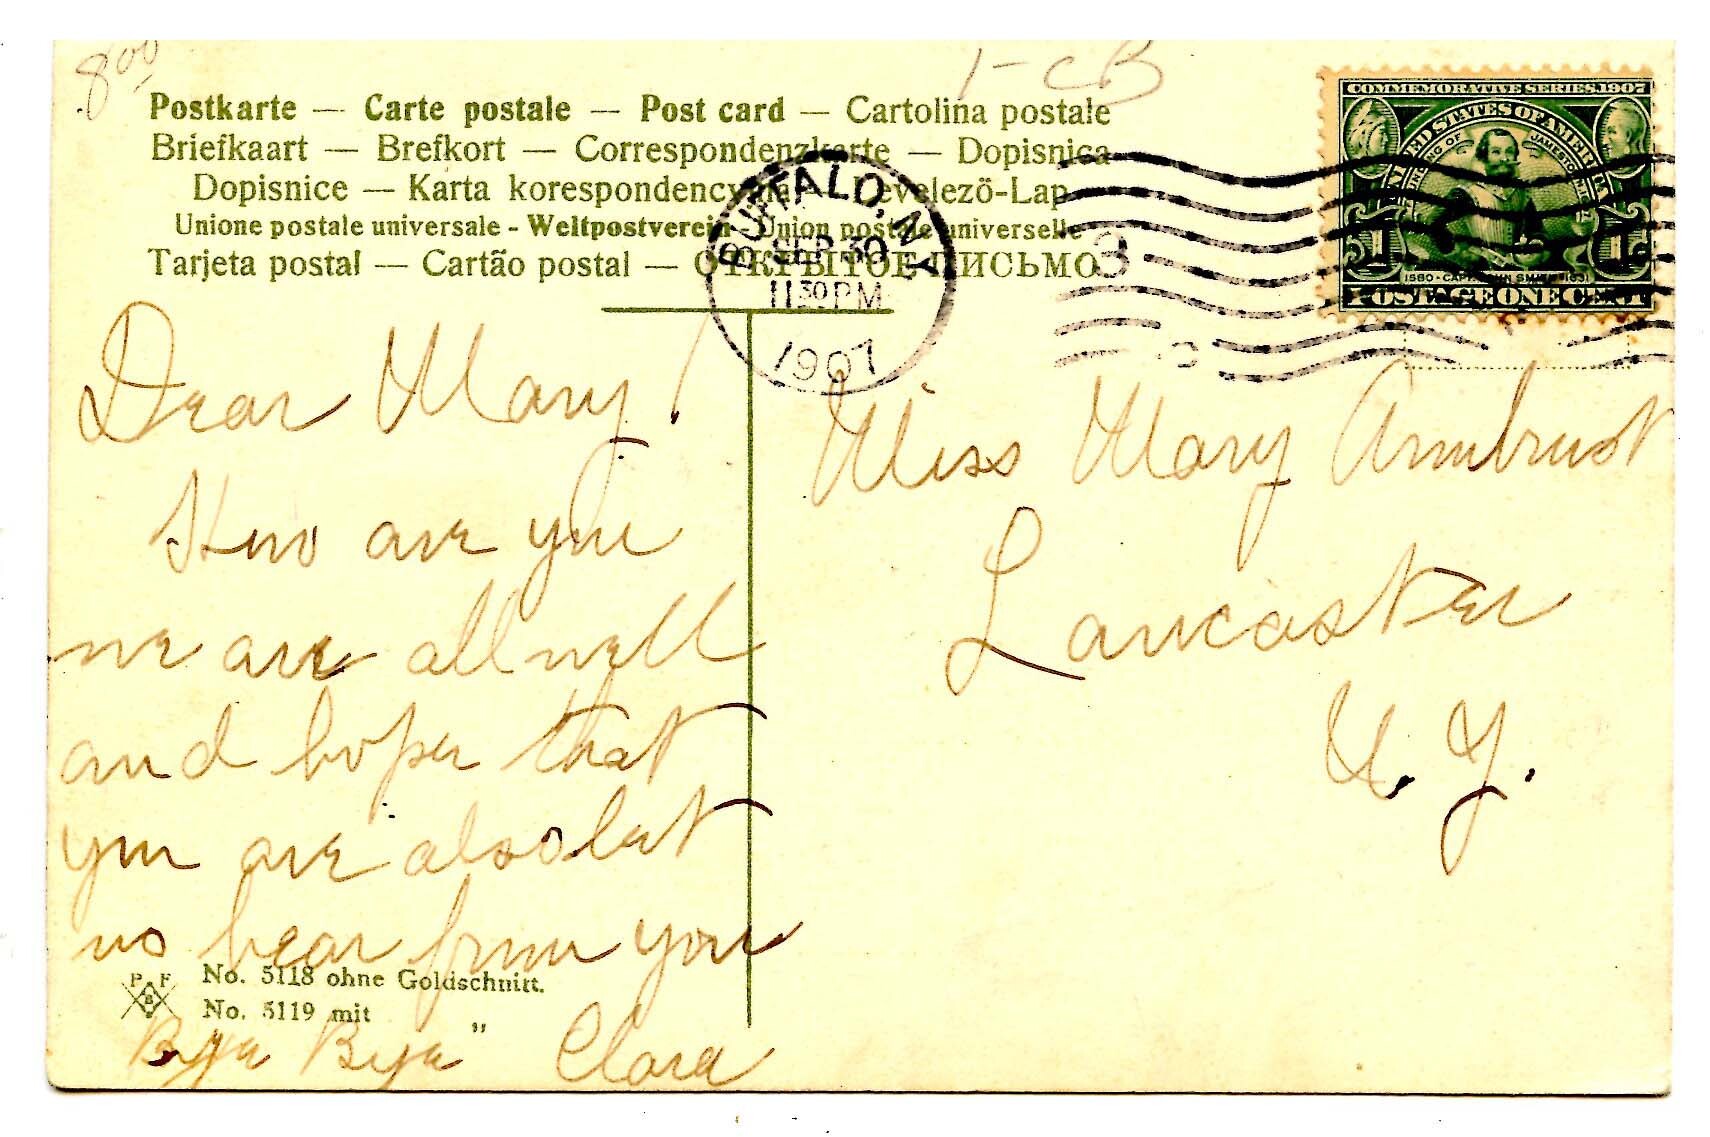 8 00
1-CB
Postkarte — Carte postale — Post card — Cartolina postale
Briefkaart — Brefkort — Correspondenzkarte — Dopisnica
Dopisnice — Karta korespondencyjna — Levelező-Lap
Unione postale universale - Weltpostverein - Union postale universelle
Tarjeta postal — Cartão postal — ОТКРЫТОЕ ПИСЬМО
BUFFALO, N.Y.
SEP 30
11 30 PM
1907
3
COMMEMORATIVE SERIES 1907
UNITED STATES OF AMERICA
FOUNDING OF JAMESTOWN
1 1c
1580 - CAPT. JOHN SMITH - 1631
POSTAGE ONE CENT
Dear Mary!
How are you
we are all well
and hope that
you are also let
us hear from you
Bye Bye Clara
Miss Mary Armbrust
Lancaster
N. Y.
P F
B
No. 5118 ohne Goldschnitt.
No. 5119 mit "